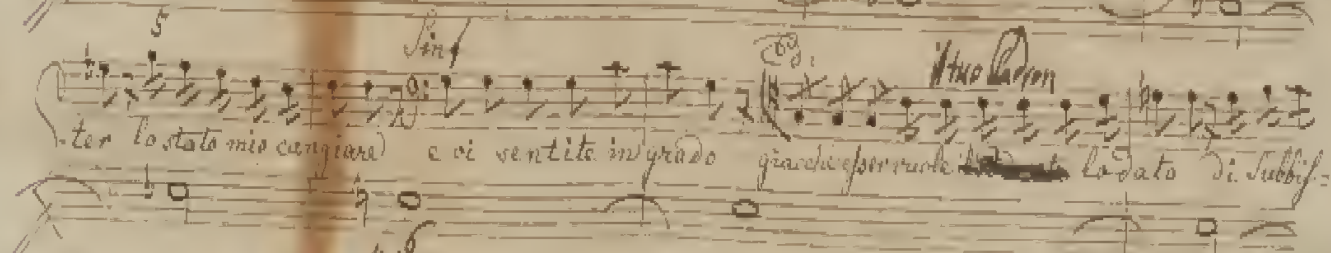 5
Sinf
Cod.
il tuo Padron
-ter lo stato mio cangiare e vi sentite in grado giacche esser vuole lodato di Subbis=